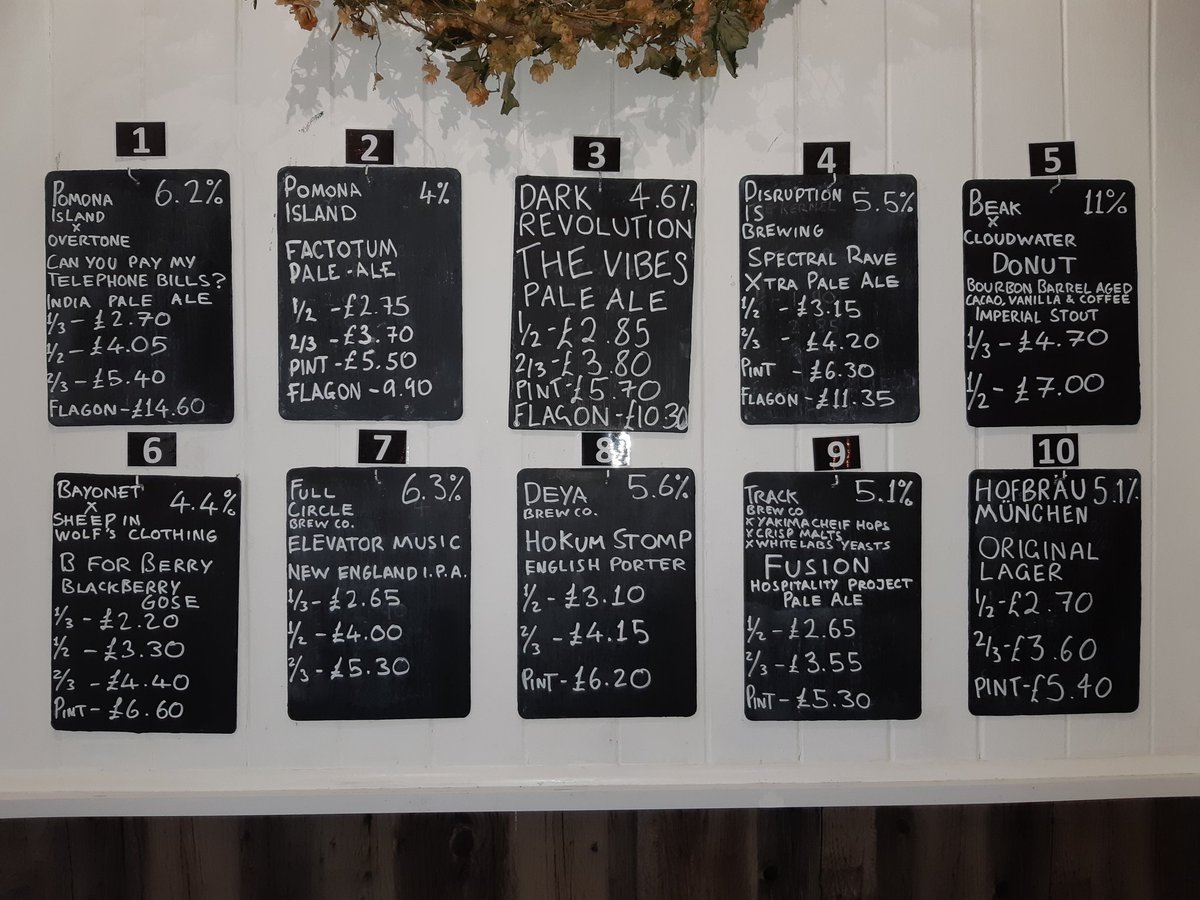 1
POMONA 6.2%
ISLAND
x
OVERTONE
CAN YOU PAY MY
TELEPHONE BILLS?
INDIA PALE ALE
1/3 - £2.70
1/2 - £4.05
2/3 - £5.40
FLAGON - £14.60
2
POMONA 4%
ISLAND
FACTOTUM
PALE-ALE
1/2 - £2.75
2/3 - £3.70
PINT - £5.50
FLAGON - 9.90
3
DARK 4.6%
REVOLUTION
THE VIBES
PALE ALE
1/2 - £2.85
2/3 - £3.80
PINT - £5.70
FLAGON - £10.30
4
DISRUPTION 5.5%
IS
BREWING
SPECTRAL RAVE
XTRA PALE ALE
1/2 - £3.15
2/3 - £4.20
PINT - £6.30
FLAGON - £11.35
5
BEAK 11%
x
CLOUDWATER
DONUT
BOURBON BARREL AGED
CACAO, VANILLA & COFFEE
IMPERIAL STOUT
1/3 - £4.70
1/2 - £7.00
6
BAYONET 4.4%
x
SHEEP IN
WOLF'S CLOTHING
B FOR BERRY
BLACKBERRY
GOSE
1/3 - £2.20
1/2 - £3.30
2/3 - £4.40
PINT - £6.60
7
FULL 6.3%
CIRCLE
BREW CO.
ELEVATOR MUSIC
NEW ENGLAND I.P.A.
1/3 - £2.65
1/2 - £4.00
2/3 - £5.30
8
DEYA 5.6%
BREW CO.
HOKUM STOMP
ENGLISH PORTER
1/2 - £3.10
2/3 - £4.15
PINT - £6.20
9
TRACK 5.1%
BREW CO
x YAKIMA CHEIF HOPS
x CRISP MALTS
x WHITE LABS YEASTS
FUSION
HOSPITALITY PROJECT
PALE ALE
1/2 - £2.65
2/3 - £3.55
PINT - £5.30
10
HOFBRÄU 5.1%
MÜNCHEN
ORIGINAL
LAGER
1/2 - £2.70
2/3 - £3.60
PINT - £5.40